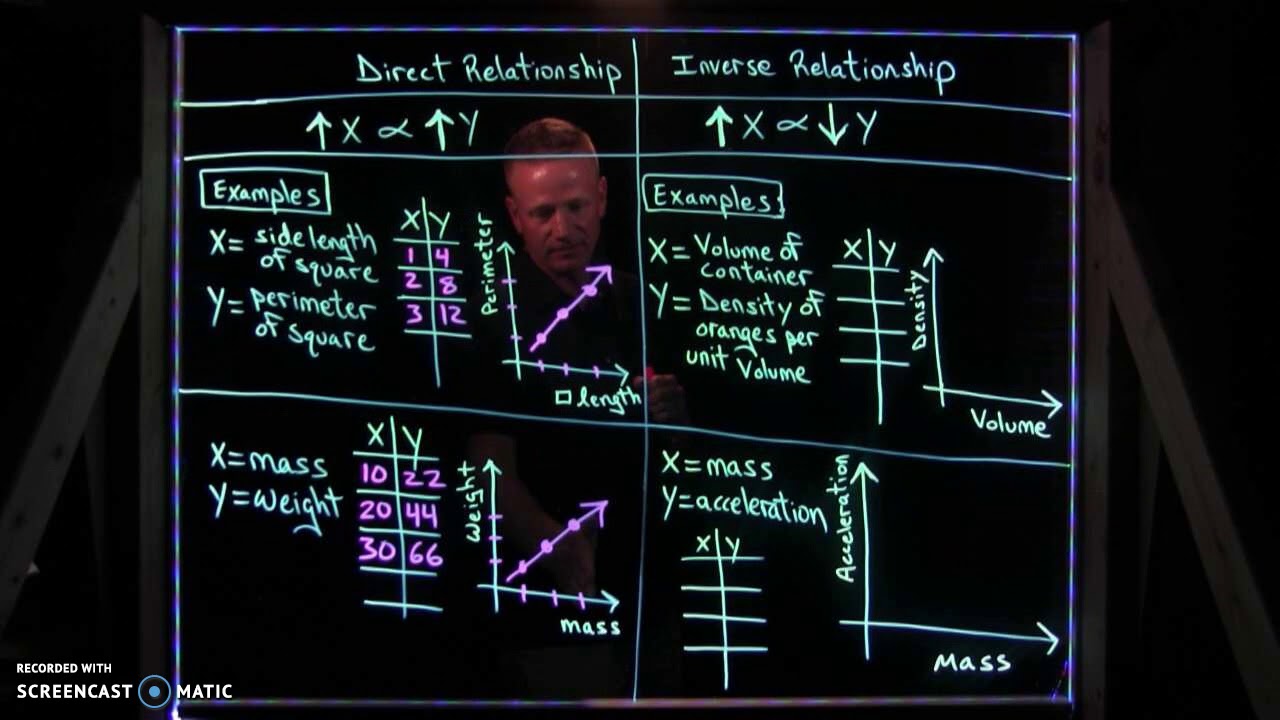 Direct Relationship
Inverse Relationship
↑ X ∝ ↑ Y
↑ X ∝ ↓ Y
Examples
X = side length
of square
Y = perimeter
of square
X Y
1 4
2 8
3 12
Perimeter
□ length
Examples:
X = Volume of
container
Y = Density of
oranges per
unit Volume
X Y
Density
Volume
X = mass
Y = weight
X Y
10 22
20 44
30 66
Weight
mass
X = mass
Y = acceleration
X Y
Acceleration
Mass
RECORDED WITH
SCREENCAST MATIC